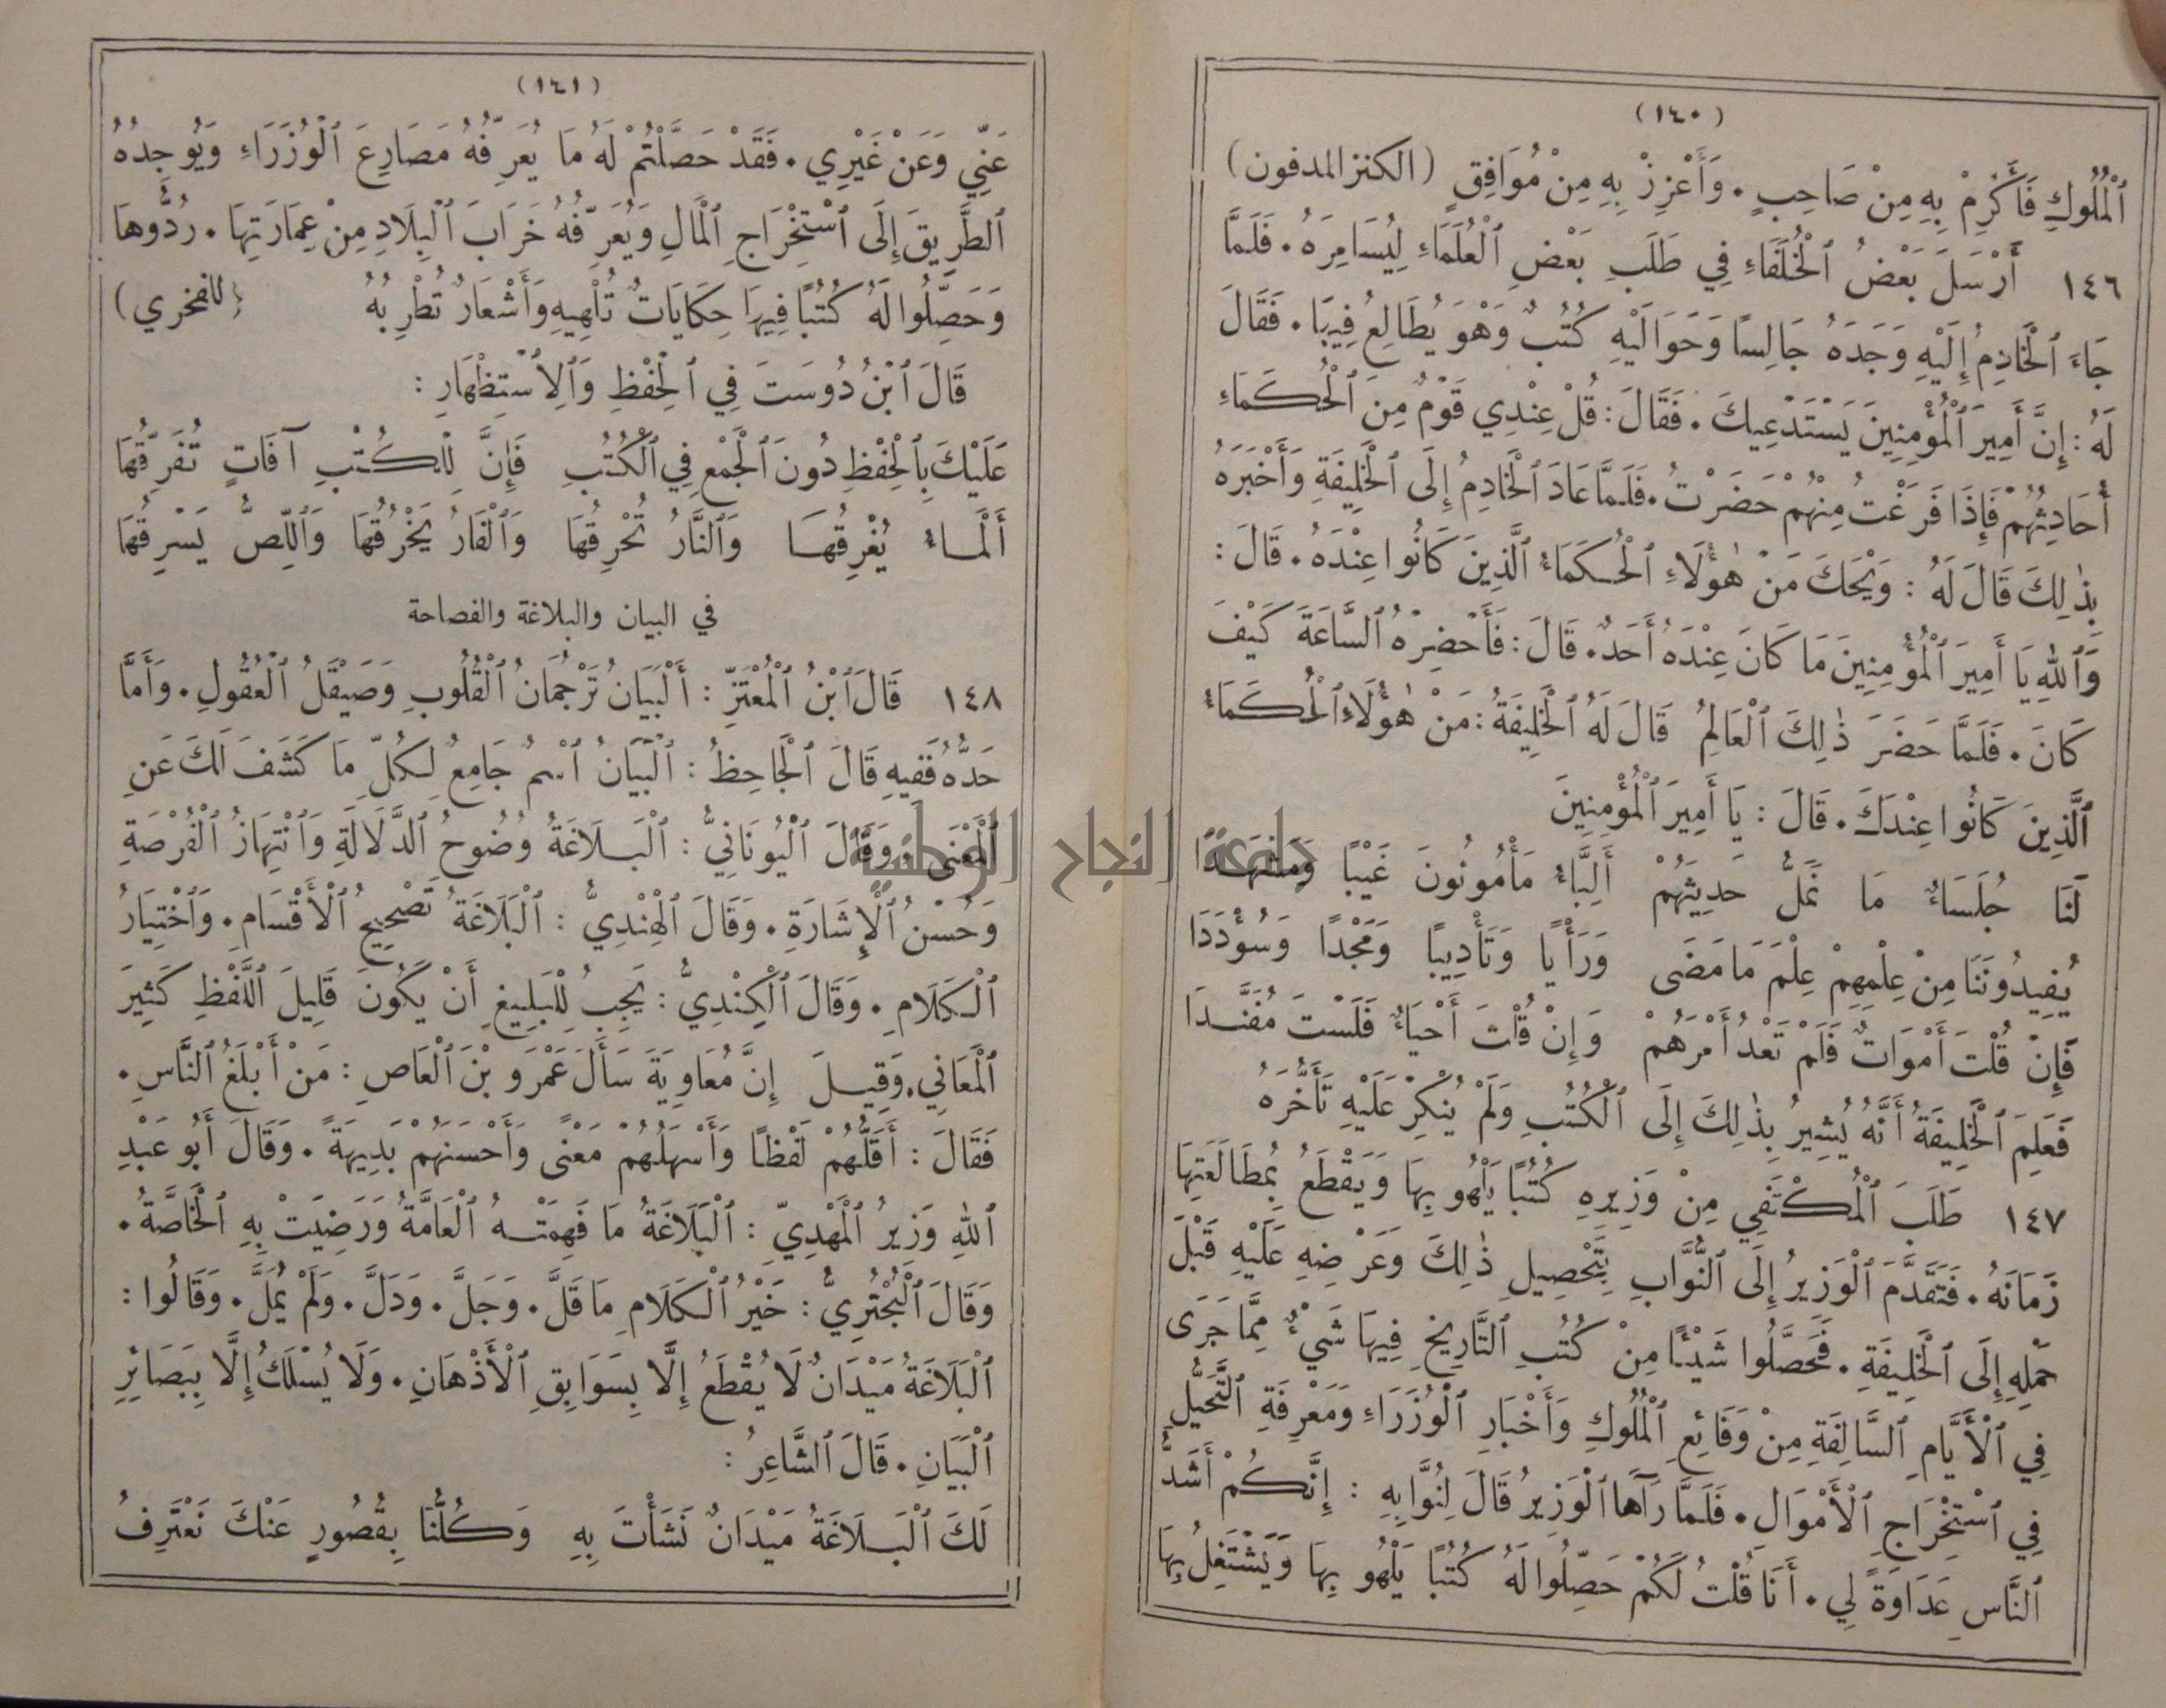 (١٤٠)
ٱلْمُلُوكِ فَأَكْرِمْ بِهِ مِنْ صَاحِبٍ . وَأَعْزِزْ بِهِ مِنْ مُوَافِقٍ (الكنز المدفون)
١٤٦ أَرْسَلَ بَعْضُ ٱلْخُلَفَاءِ فِي طَلَبِ بَعْضِ ٱلْعُلَمَاءِ لِيُسَامِرَهُ . فَلَمَّا
جَاءَ ٱلْخَادِمُ إِلَيْهِ وَجَدَهُ جَالِسًا وَحَوَالَيْهِ كُتُبٌ وَهْوَ يُطَالِعُ فِيهَا . فَقَالَ
لَهُ : إِنَّ أَمِيرَ ٱلْمُؤْمِنِينَ يَسْتَدْعِيكَ . فَقَالَ : قُلْ عِنْدِي قَوْمٌ مِنَ ٱلْحُكَمَاءِ
أُحَادِثُهُمْ فَإِذَا فَرَغْتُ مِنْهُمْ حَضَرْتُ . فَلَمَّا عَادَ ٱلْخَادِمُ إِلَى ٱلْخَلِيفَةِ وَأَخْبَرَهُ
بِذٰلِكَ قَالَ لَهُ : وَيْحَكَ مَنْ هٰؤُلَاءِ ٱلْحُكَمَاءُ ٱلَّذِينَ كَانُوا عِنْدَهُ . قَالَ :
وَٱللّٰهِ يَا أَمِيرَ ٱلْمُؤْمِنِينَ مَا كَانَ عِنْدَهُ أَحَدٌ . قَالَ : فَأَحْضِرْهُ ٱلسَّاعَةَ كَيْفَ
كَانَ . فَلَمَّا حَضَرَ ذٰلِكَ ٱلْعَالِمُ قَالَ لَهُ ٱلْخَلِيفَةُ : مَنْ هٰؤُلَاءِ ٱلْحُكَمَاءُ
ٱلَّذِينَ كَانُوا عِنْدَكَ . قَالَ : يَا أَمِيرَ ٱلْمُؤْمِنِينَ
لَنَا جُلَسَاءٌ مَا نَمَلُّ حَدِيثَهُمْ أَلِبَّاءُ مَأْمُونُونَ غَيْبًا وَمَشْهَدًا
يُفِيدُونَنَا مِنْ عِلْمِهِمْ عِلْمَ مَا مَضَى وَرَأْيًا وَتَأْدِيبًا وَمَجْدًا وَسُؤْدَدَا
فَإِنْ قُلْتَ أَمْوَاتٌ فَلَمْ تَعْدُ أَمْرَهُمْ وَإِنْ قُلْتَ أَحْيَاءٌ فَلَسْتَ مُفَنَّدَا
فَعَلِمَ ٱلْخَلِيفَةُ أَنَّهُ يُشِيرُ بِذٰلِكَ إِلَى ٱلْكُتُبِ وَلَمْ يُنْكِرْ عَلَيْهِ تَأَخُّرَهُ
١٤٧ طَلَبَ ٱلْمُكْتَفِي مِنْ وَزِيرِهِ كُتُبًا يَلْهُو بِهَا وَيَقْطَعُ بِمُطَالَعَتِهَا
زَمَانَهُ . فَتَقَدَّمَ ٱلْوَزِيرُ إِلَى ٱلنُّوَّابِ بِتَحْصِيلِ ذٰلِكَ وَعَرْضِهِ عَلَيْهِ قَبْلَ
حَمْلِهِ إِلَى ٱلْخَلِيفَةِ . فَحَصَّلُوا شَيْئًا مِنْ كُتُبِ ٱلتَّارِيخِ فِيهَا شَيْءٌ مِمَّا جَرَى
فِي ٱلْأَيَّامِ ٱلسَّالِفَةِ مِنْ وَقَائِعِ ٱلْمُلُوكِ وَأَخْبَارِ ٱلْوُزَرَاءِ وَمَعْرِفَةِ ٱلتَّحَيُّلِ
فِي ٱسْتِخْرَاجِ ٱلْأَمْوَالِ . فَلَمَّا رَآهَا ٱلْوَزِيرُ قَالَ لِنُوَّابِهِ : إِنَّكُمْ أَشَدُّ
ٱلنَّاسِ عَدَاوَةً لِي . أَنَا قُلْتُ لَكُمْ حَصِّلُوا لَهُ كُتُبًا يَلْهُو بِهَا وَيَشْتَغِلُ بِهَا
(١٤١)
عَنِّي وَعَنْ غَيْرِي . فَقَدْ حَصَّلْتُمْ لَهُ مَا يُعَرِّفُهُ مَصَارِعَ ٱلْوُزَرَاءِ وَيُوجِدُهُ
ٱلطَّرِيقَ إِلَى ٱسْتِخْرَاجِ ٱلْمَالِ وَيُعَرِّفُهُ خَرَابَ ٱلْبِلَادِ مِنْ عِمَارَتِهَا . رُدُّوهَا
وَحَصِّلُوا لَهُ كُتُبًا فِيهَا حِكَايَاتٌ تُلْهِيهِ وَأَشْعَارٌ تُطْرِبُهُ (للفخري)
قَالَ ٱبْنُ دُوسَتَ فِي ٱلْحِفْظِ وَٱلِٱسْتِظْهَارِ :
عَلَيْكَ بِٱلْحِفْظِ دُونَ ٱلْجَمْعِ فِي ٱلْكُتُبِ فَإِنَّ لِلْكُتْبِ آفَاتٍ تُفَرِّقُهَا
أَلْمَاءُ يُغْرِقُهَا وَٱلنَّارُ تُحْرِقُهَا وَٱلْفَارُ يَخْرُقُهَا وَٱللِّصُّ يَسْرِقُهَا
في البيان والبلاغة والفصاحة
١٤٨ قَالَ ٱبْنُ ٱلْمُعْتَزِّ : أَلْبَيَانُ تَرْجُمَانُ ٱلْقُلُوبِ وَصَيْقَلُ ٱلْعُقُولِ . وَأَمَّا
حَدُّهُ فَفِيهِ قَالَ ٱلْجَاحِظُ : ٱلْبَيَانُ ٱسْمٌ جَامِعٌ لِكُلِّ مَا كَشَفَ لَكَ عَنِ
ٱلْمَعْنَى . وَقَالَ ٱلْيُونَانِيُّ : ٱلْبَلَاغَةُ وُضُوحُ ٱلدَّلَالَةِ وَٱنْتِهَازُ ٱلْفُرْصَةِ
وَحُسْنُ ٱلْإِشَارَةِ . وَقَالَ ٱلْهِنْدِيُّ : ٱلْبَلَاغَةُ تَصْحِيحُ ٱلْأَقْسَامِ . وَٱخْتِيَارُ
ٱلْكَلَامِ . وَقَالَ ٱلْكِنْدِيُّ : يَجِبُ لِلْبَلِيغِ أَنْ يَكُونَ قَلِيلَ ٱللَّفْظِ كَثِيرَ
ٱلْمَعَانِي . وَقِيلَ إِنَّ مُعَاوِيَةَ سَأَلَ عَمْرَو بْنَ ٱلْعَاصِ : مَنْ أَبْلَغُ ٱلنَّاسِ .
فَقَالَ : أَقَلُّهُمْ لَفْظًا وَأَسْهَلُهُمْ مَعْنًى وَأَحْسَنُهُمْ بَدِيهَةً . وَقَالَ أَبُو عَبْدِ
ٱللّٰهِ وَزِيرُ ٱلْمَهْدِيِّ : ٱلْبَلَاغَةُ مَا فَهِمَتْهُ ٱلْعَامَّةُ وَرَضِيَتْ بِهِ ٱلْخَاصَّةُ .
وَقَالَ ٱلْبُحْتُرِيُّ : خَيْرُ ٱلْكَلَامِ مَا قَلَّ . وَجَلَّ . وَدَلَّ . وَلَمْ يُمَلَّ . وَقَالُوا :
ٱلْبَلَاغَةُ مَيْدَانٌ لَا يُقْطَعُ إِلَّا بِسَوَابِقِ ٱلْأَذْهَانِ . وَلَا يُسْلَكُ إِلَّا بِبَصَائِرِ
ٱلْبَيَانِ . قَالَ ٱلشَّاعِرُ :
لَكَ ٱلْبَلَاغَةُ مَيْدَانٌ نَشَأْتَ بِهِ وَكُلُّنَا بِقُصُورٍ عَنْكَ نَعْتَرِفُ
جامعة النجاح الوطنية